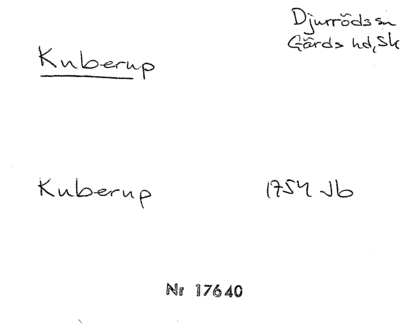 Djurröds sn
Gärds hd, Sk
Kuberup
Kuberup 1754 Jb
Nr 17640